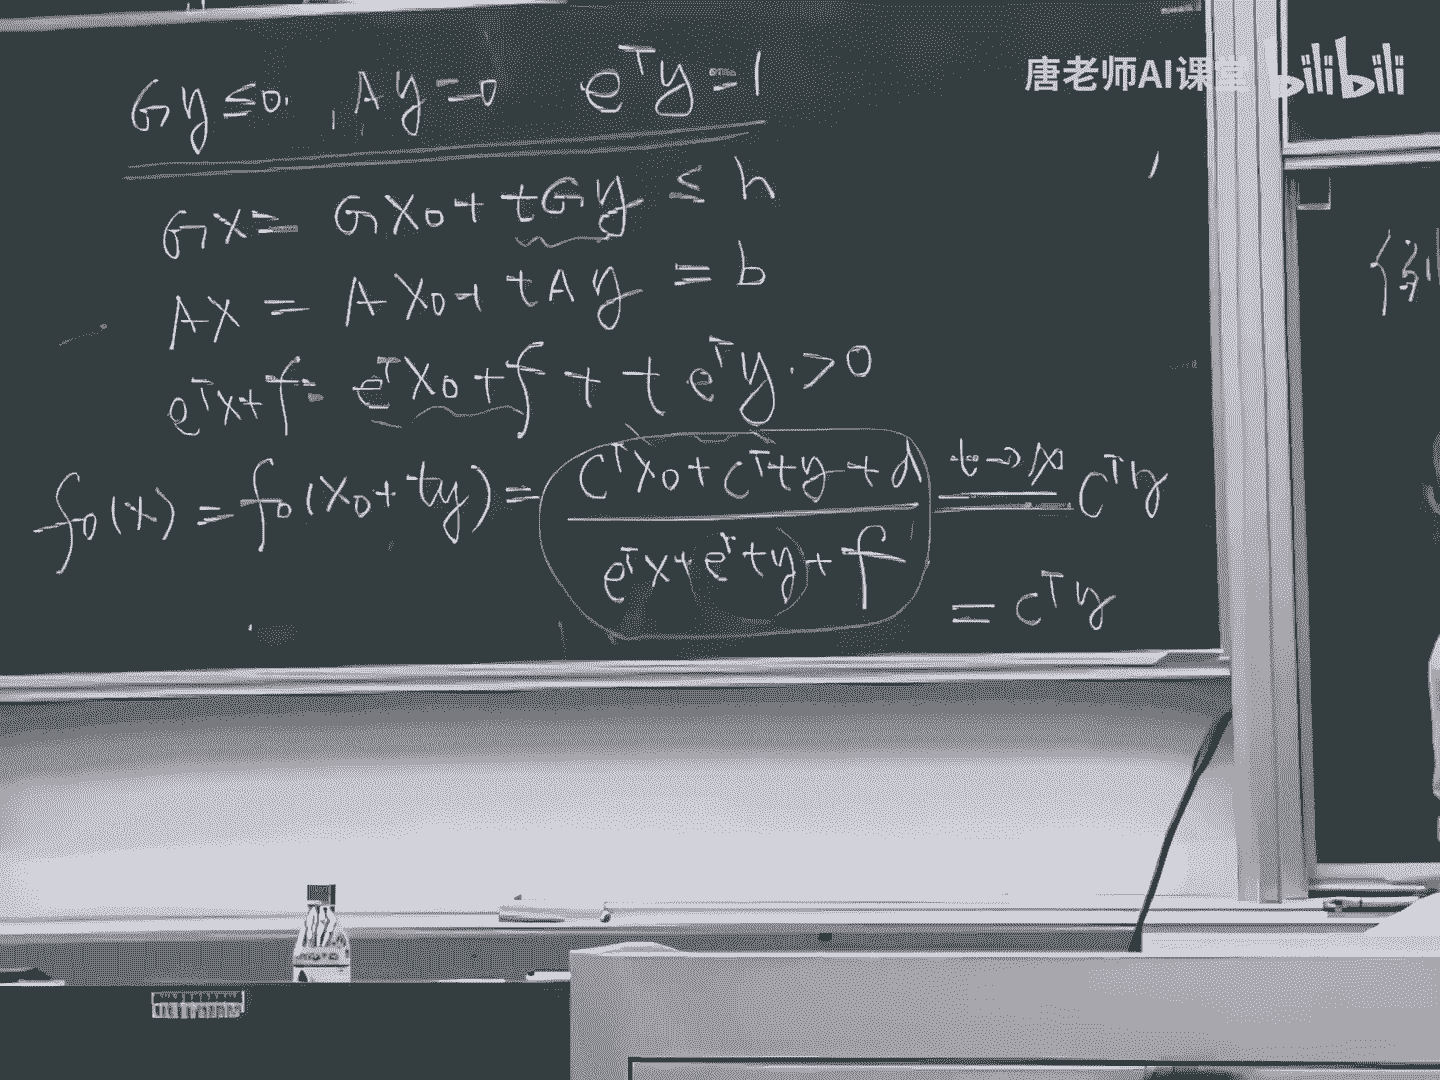 唐老师AI课堂 bilibili
Gy ≤ 0, Ay = 0 eᵀy = 1
Gx = Gx₀ + tGy ≤ h
Ax = Ax₀ + tAy = b
eᵀx + f = eᵀx₀ + f + t eᵀy > 0
f₀(x) = f₀(x₀ + ty) = (cᵀx₀ + cᵀty + d) / (eᵀx + eᵀty + f) = t→∞ cᵀy
= cᵀy